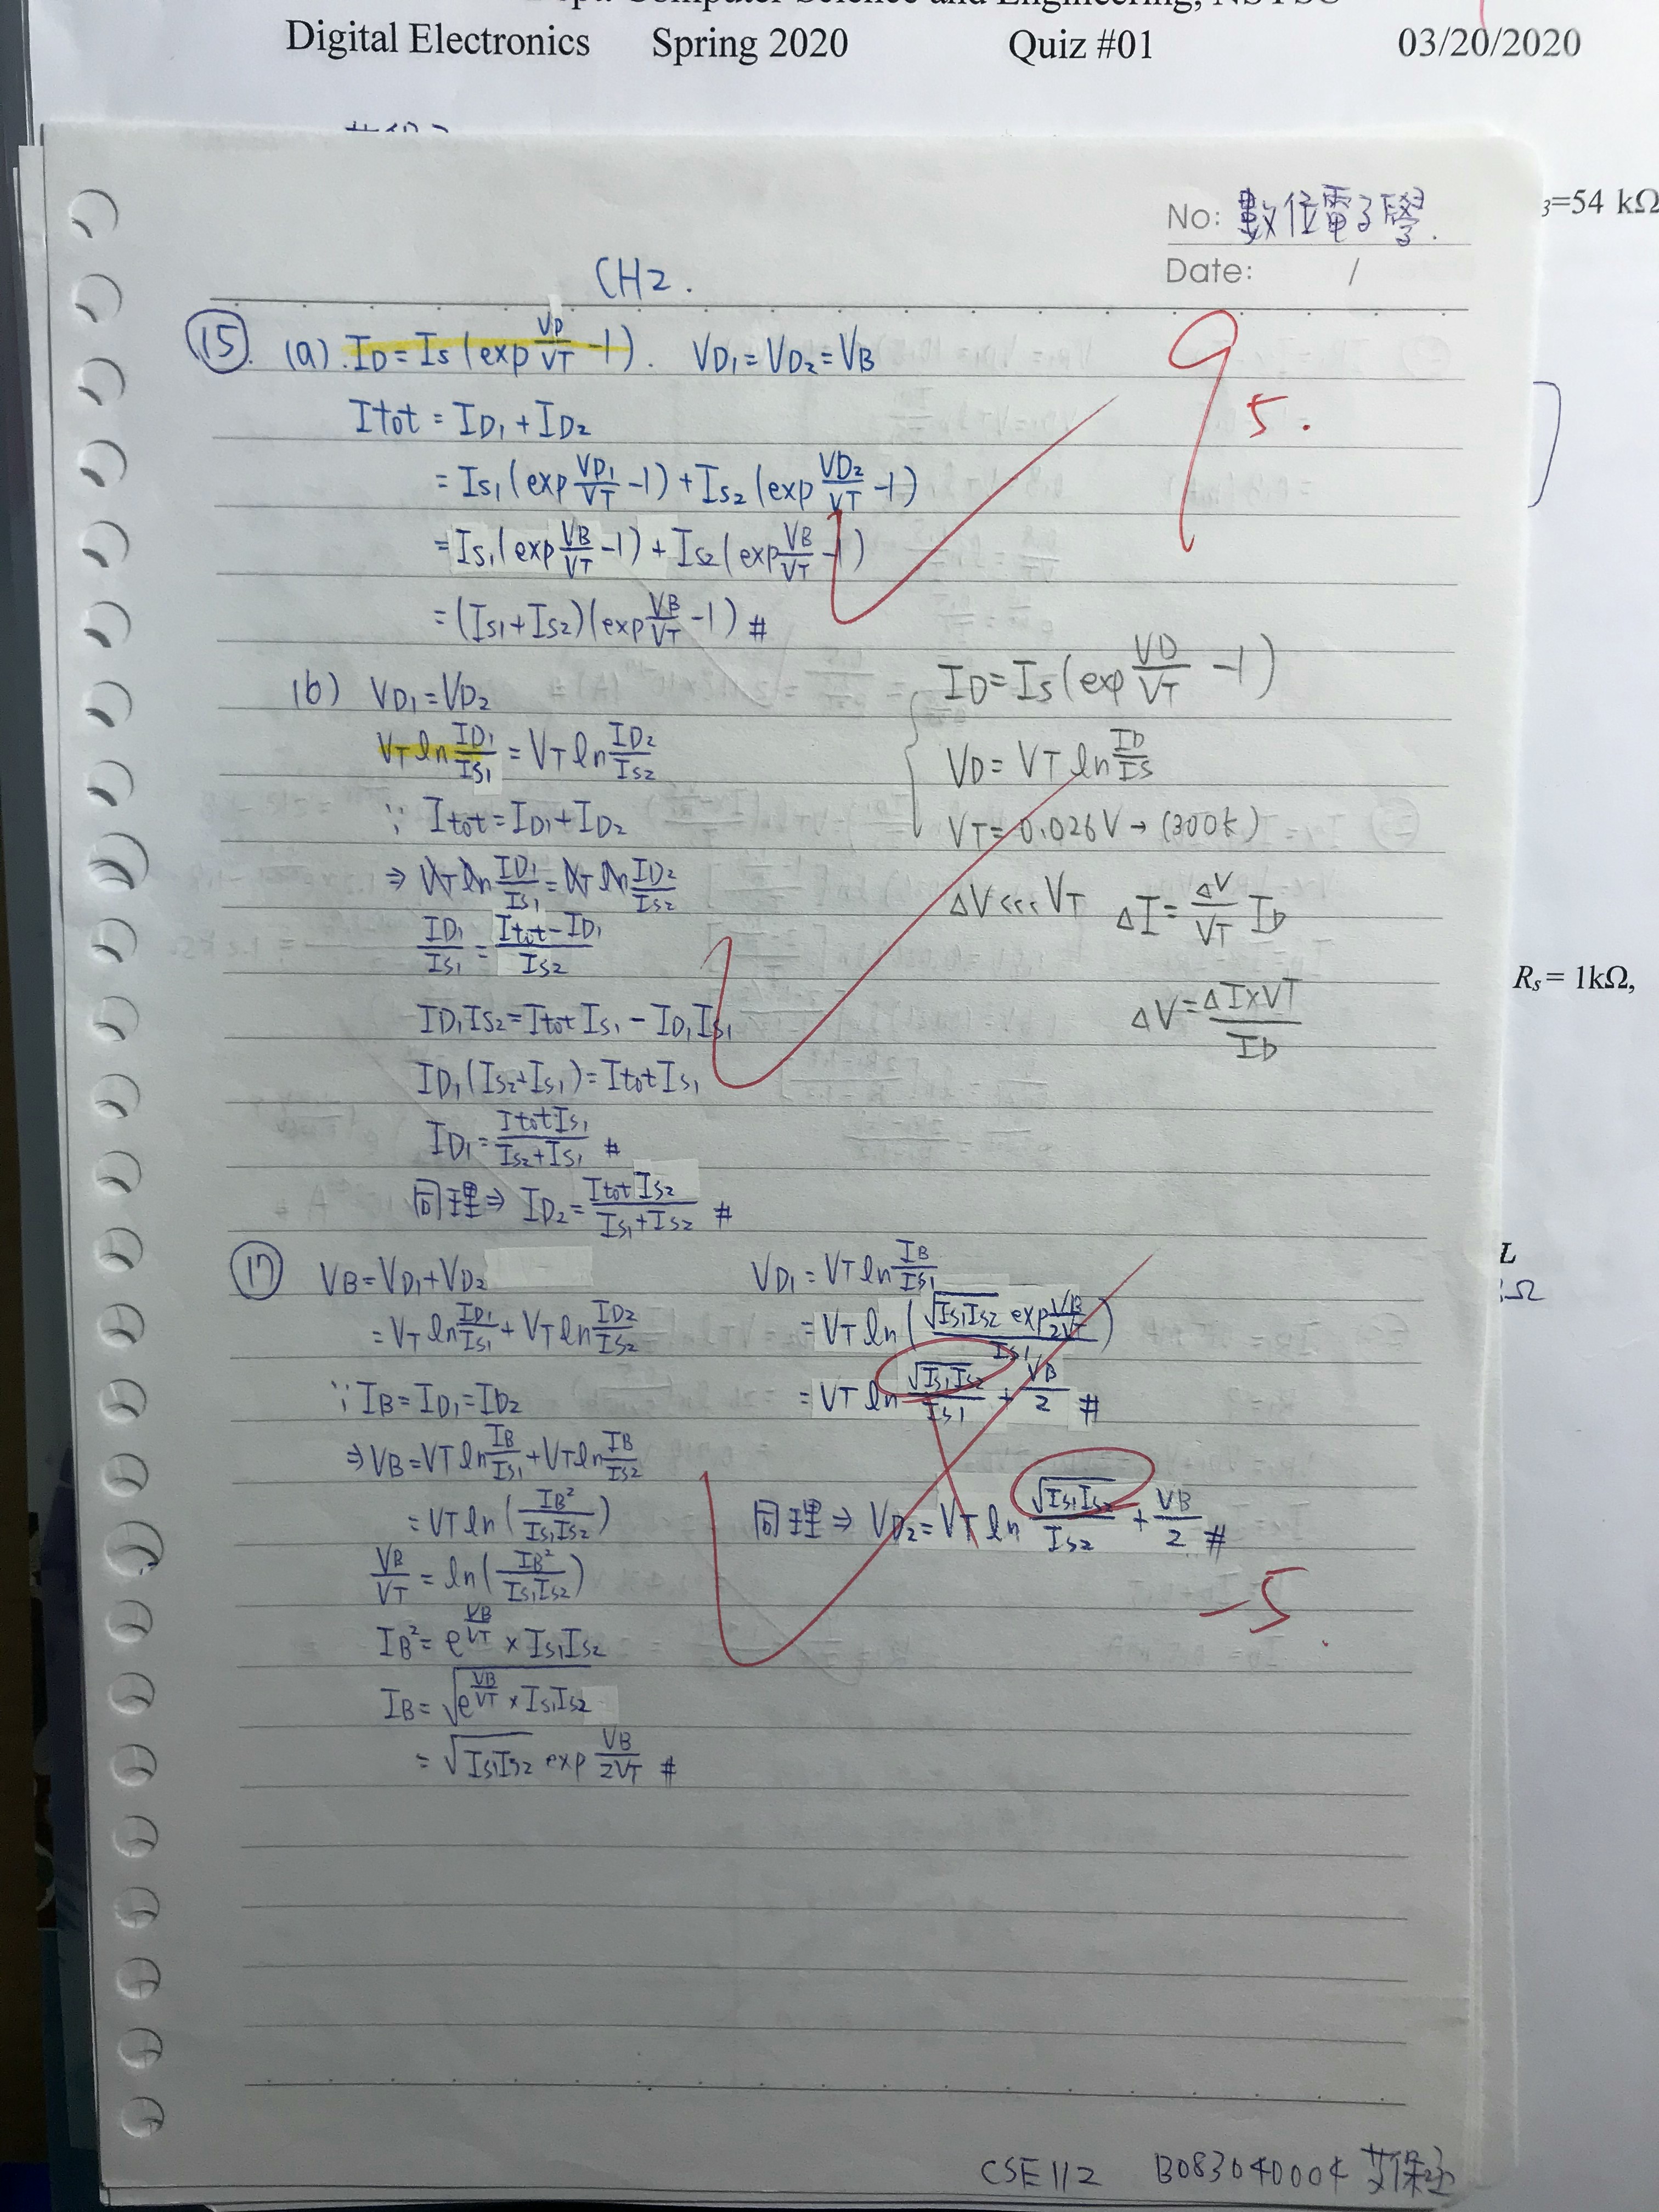 Dept. Computer Science and Engineering, NSYSU
Digital Electronics Spring 2020 Quiz #01 03/20/2020
No: 數位電子學.
₃=54 kΩ
Date: /
CH2.
95.
(15). (a). ID = Is (exp VD/VT -1). VD₁ = VD₂ = VB
Itot = ID₁ + ID₂
= Is₁ (exp VD₁/VT -1) + Is₂ (exp VD₂/VT -1)
= Is₁ (exp VB/VT -1) + Is₂ (exp VB/VT -1)
= (Is₁+Is₂)(exp VB/VT -1) #
(b) VD₁ = VD₂
VT ln ID₁/Is₁ = VT ln ID₂/Is₂
∵ Itot = ID₁+ID₂
⇒ VT ln ID₁/Is₁ = VT ln ID₂/Is₂
ID₁/Is₁ = Itot-ID₁/Is₂
ID₁Is₂ = Itot Is₁ - ID₁Is₁
ID₁(Is₂+Is₁) = Itot Is₁
ID₁ = Itot Is₁/Is₂+Is₁ #
同理⇒ ID₂ = Itot Is₂/Is₁+Is₂ #
ID = Is (exp VD/VT -1)
VD = VT ln ID/Is
VT = 0.026V → (300k)
ΔV <<< VT ΔI = ΔV/VT ID
ΔV = ΔI×VT/ID
Rs = 1kΩ,
L
Ω
(17) VB = VD₁+VD₂
= VT ln ID₁/Is₁ + VT ln ID₂/Is₂
∵ IB = ID₁ = ID₂
⇒ VB = VT ln IB/Is₁ + VT ln IB/Is₂
= VT ln (IB²/Is₁Is₂)
VB/VT = ln (IB²/Is₁Is₂)
IB² = e^VB/VT × Is₁Is₂
IB = √e^VB/VT × Is₁Is₂
= √Is₁Is₂ exp VB/2VT #
VD₁ = VT ln IB/Is₁
= VT ln (√Is₁Is₂ exp VB/2VT/Is₁)
= VT ln √Is₁Is₂/Is₁ + VB/2 #
同理⇒ VD₂ = VT ln √Is₁Is₂/Is₂ + VB/2 #
-5
CSE112 B083040004